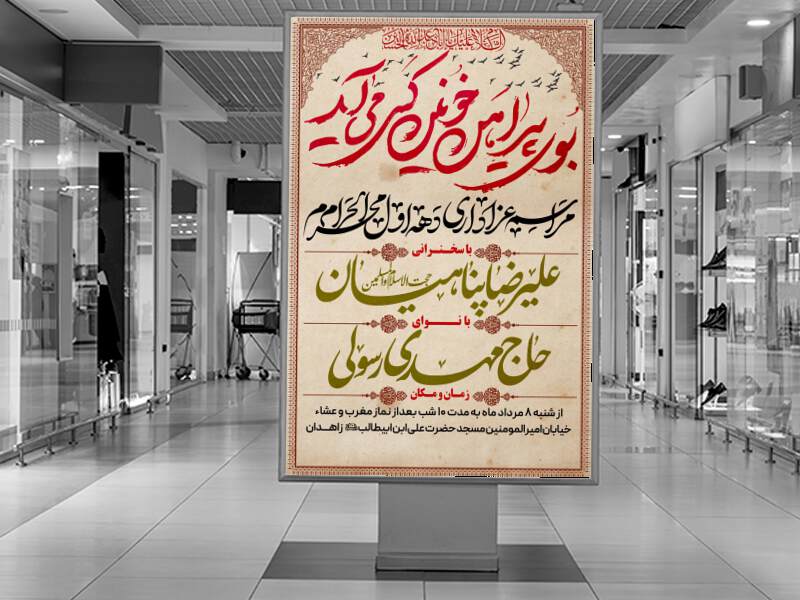 السلام علیک یا اباعبدالله الحسین
بوی پیراهن خونین کسی می آید
مراسم عزاداری دهه اول محرم الحرام
با سخنرانی
حجت الاسلام والمسلمین علیرضا پناهیان
با نوای
حاج مهدی رسولی
زمان و مکان
از شنبه ۸ مرداد ماه به مدت ۱۰ شب بعد از نماز مغرب و عشاء
خیابان امیرالمومنین مسجد حضرت علی ابن ابیطالب زاهدان